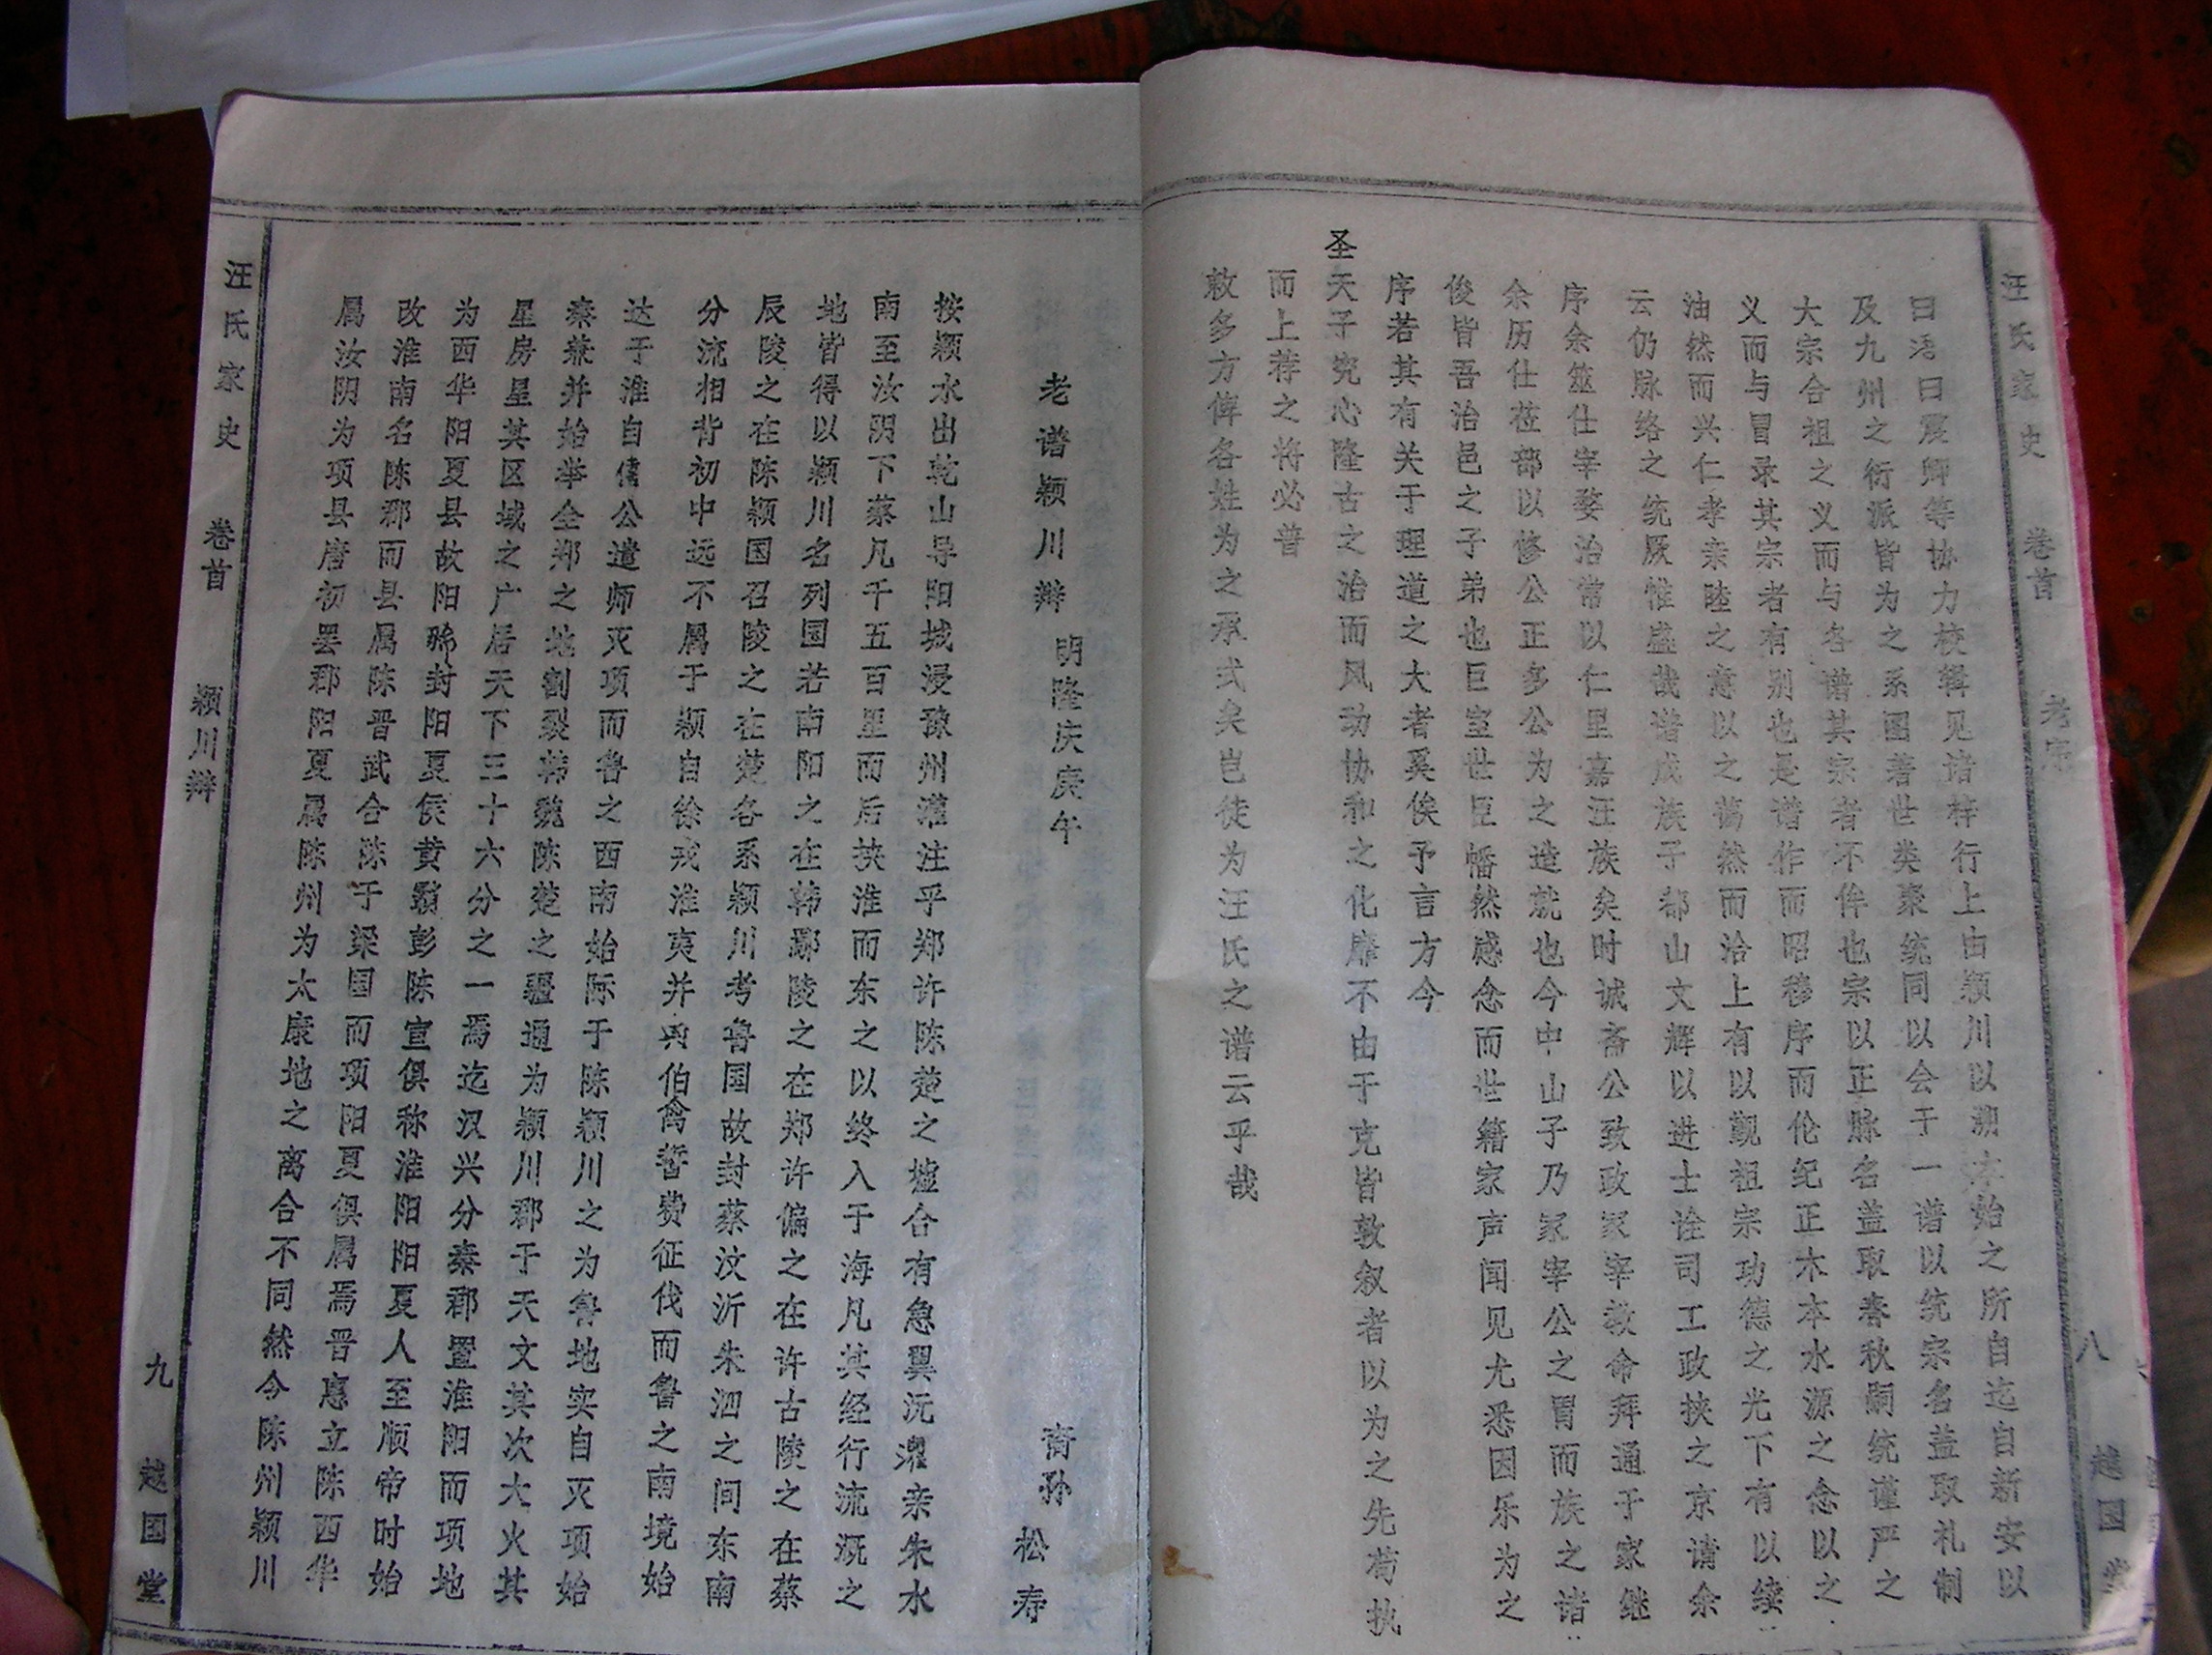 汪氏家史 卷首 老序 八 越国堂
曰浯曰震卿等协力校辑见谙梓行上由颖川以溯本始之所自迄自新安以
及九州之衍派皆为之系图著世类聚统同以会于一谱以统宗名盖取礼制
大宗合祖之义而与各谱其宗者不侔也宗以正脉名盖取春秋嗣统谨严之
义而与冒录其宗者有别也是谱作而昭穆序而伦纪正木本水源之念以之
油然而兴仁孝亲睦之意以之蔼然而洽上有以觐祖宗功德之光下有以续
云仍脉络之统厥惟盛哉谱成族子都山文辉以进士诠司工政挟之京请余
序余筮仕宰婺治常以仁里嘉汪族矣时诚斋公致政冢宰教命拜通于家继
余历仕莅部以修公正多公为之造就也今中山子乃冢宰公之胃而族之诸
俊皆吾治邑之子弟也巨室世臣幡然感念而世籍家声闻见尤悉因乐为之
序若其有关于理道之大者奚俟予言方今
圣天子究心隆古之治而风动协和之化靡不由于克皆敦叙者以为之先苟执
而上荐之将必普
敕多方俾各姓为之承式矣岂徒为汪氏之谱云乎哉
老谱颖川辩 明隆庆庚午 裔孙 松寿
按颖水出乾山导阳城浸豫州灌注乎郑许陈楚之墟合有急翼沅灈亲朱水
南至汝阴下蔡凡千五百里而后挟淮而东之以终入于海凡其经行流溉之
地皆得以颖川名列国若南阳之在韩鄢陵之在郑许偏之在许古陵之在蔡
辰陵之在陈颖国召陵之在楚各系颖川考鲁国故封蔡汶沂朱泗之间东南
分流相背初中远不属于颖自徐戎淮夷并兴伯禽誓费征伐而鲁之南境始
达于淮自僖公遣师灭项而鲁之西南始际于陈颖川之为鲁地实自灭项始
秦兼并始举全郑之地割裂韩魏陈楚之疆通为颖川郡于天文其次大火其
星房星其区域之广居天下三十六分之一焉迄汉兴分秦郡置淮阳而项地
为西华阳夏县故阳骀封阳夏侯黄颡彭陈宣俱称淮阳阳夏人至顺帝时始
改淮南名陈郡而县属陈晋武合陈于梁国而项阳夏俱属焉晋惠立陈西华
属汝阴为项县唐初罢郡阳夏属陈州为太康地之离合不同然今陈州颖川
汪氏家史 卷首 颖川辩 九 越国堂